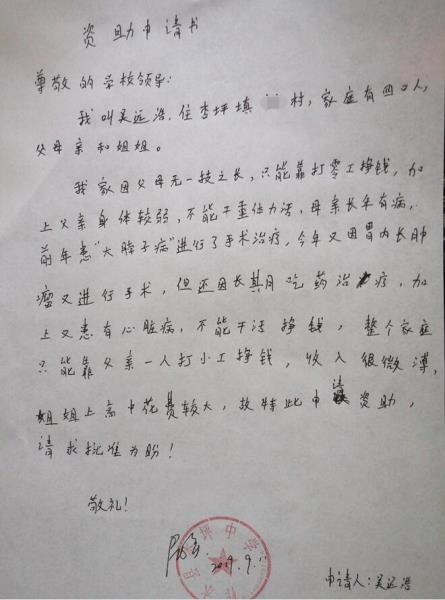 资助申请书
尊敬的学校领导:
我叫吴远浩,住杏坪填 村,家庭有四口人,
父母亲和姐姐。
我家因父母无一技之长,只能靠打零工挣钱,加
上父亲身体较弱,不能干重体力活,母亲长年有病,
前年患“大脖子病”进行了手术治疗,今年又因胃内长肿
瘤又进行手术,但还因长期吃药治疗,加
上又患有心脏病,不能干活挣钱,整个家庭
只能靠父亲一人打小工挣钱,收入很微薄,
姐姐上高中花费较大,故特此申请资助,
请求批准为盼!
敬礼!
坪中学
2019.9.
申请人:吴远浩